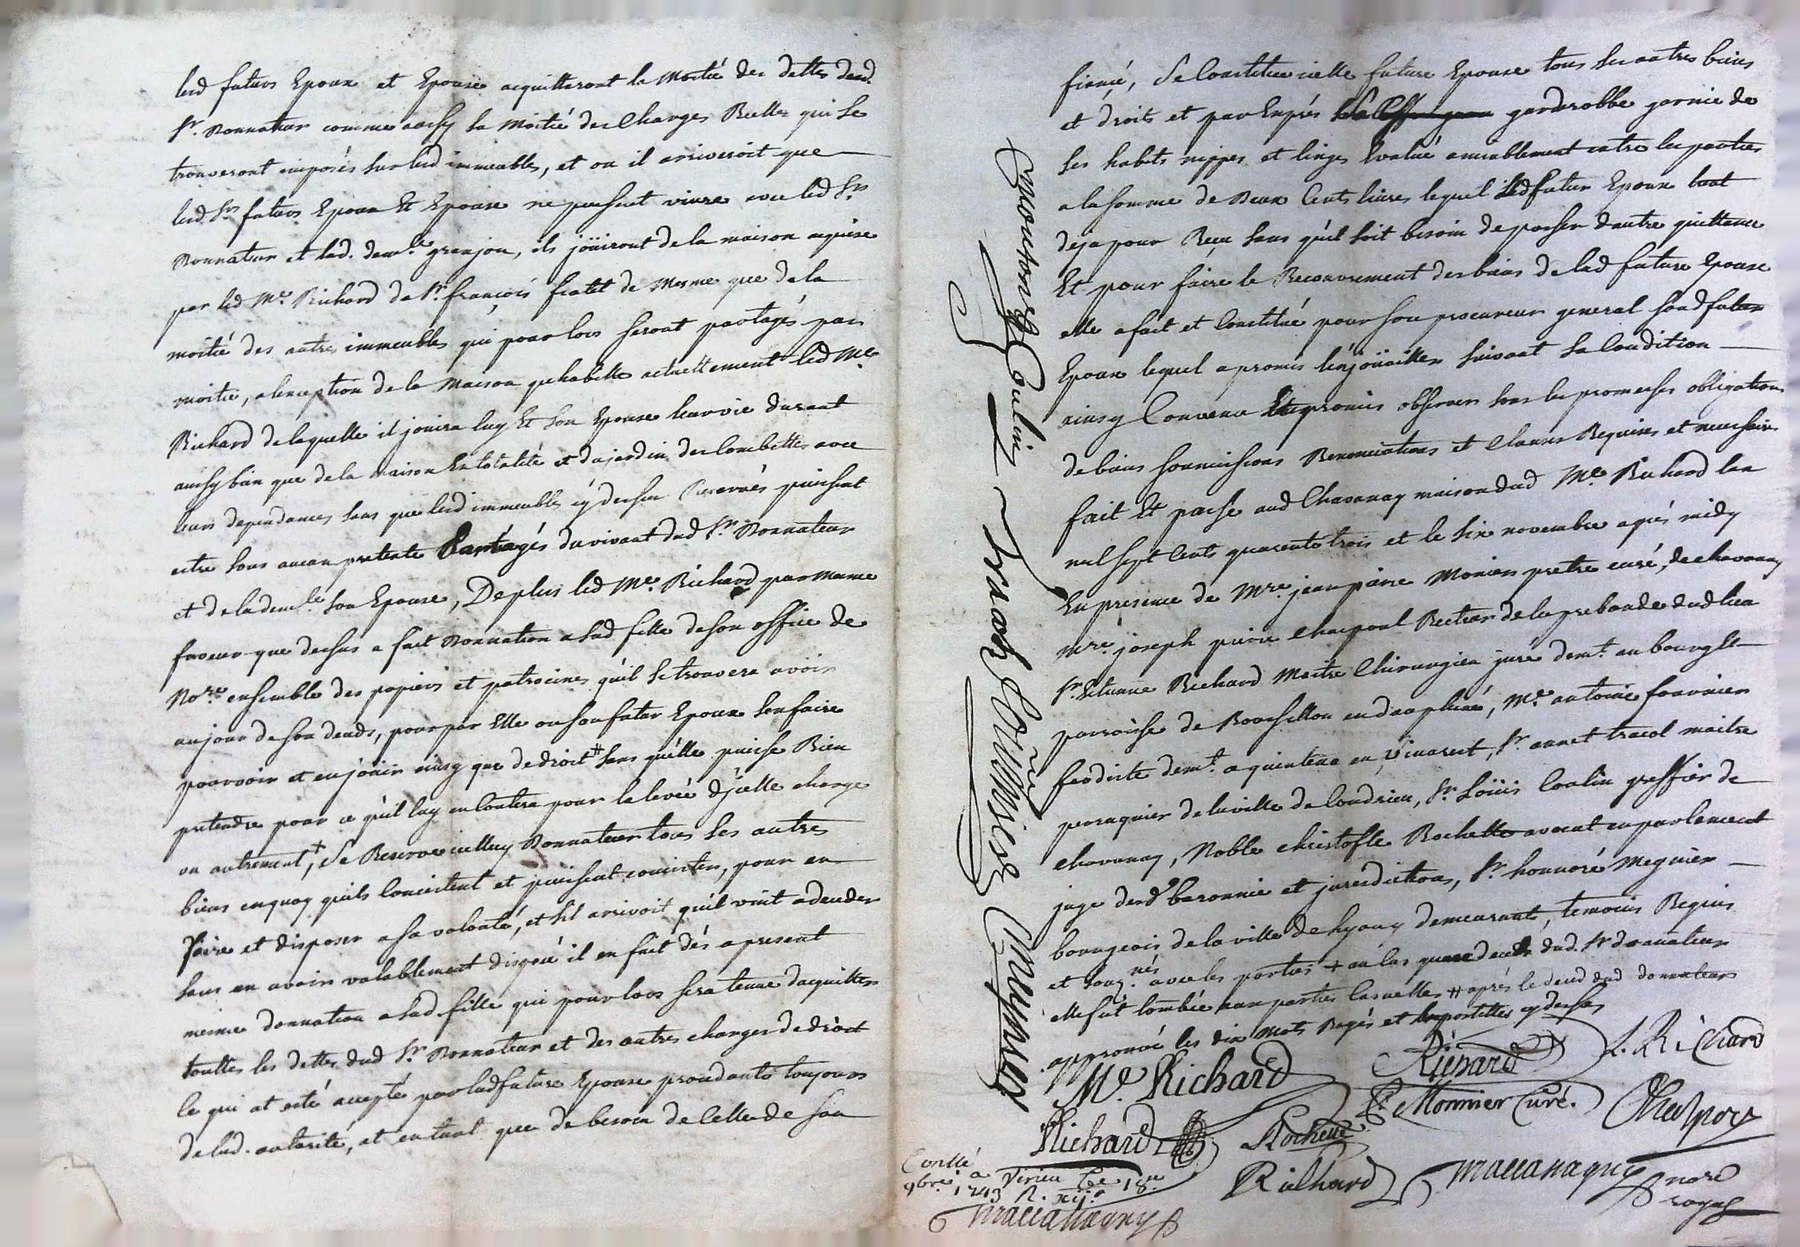 led futurs Epoux et Epouse acquitteront la Moitié des dettes dud.
Sr. Donnateur comme aussy la Moitié des Charges Reelles qui se
trouveront imposés sur led immeubles, et ou il arriveroit que
lesd. Srs futurs Epoux Et Epouse ne peusent vivre avec led Sr.
Donnateur et lad. demlle granjon, ils joüiront de la maison aquise
par led Me Richard de Sr françois fiatet de Mesme que de la
moitié des autres immeubles qui pour lors seront partagés par
moitie, a lexception de la Maison quhabitte actuellement led Me.
Richard de laquelle il jouira luy Et son Epouse leur vie durant
aussy bien que de la maison En totalité et du jardin des combettes avec
leurs dependances sans que lesd immeubles cy dessus Reservés puissent
estre sous aucun pretexte Partagés du vivant dud Sr. Donnateur
et de lademlle son Epouse, De plus led Me. Richard par mesme
faveur que dessus a fait Donnation a sad fille de son office de
Nore ensemble des papiers et patrocines qu'il se trouvera avoir
au jour de son deceds, pour par Elle ou son futur Epoux sen faire
pourvoir et en jouir ainsy que de droit # sans qu'elle puisse Rien
pretendre pour ce qu'il luy en Coutera pour la levée d'jcelle charge
ou autrement, + Se Reserve icelluy Donnateur tous ses autres
biens en quoy qu'ils Concistent et puissent concister, pour en
faire et disposer a sa volonté, et s'il arrivoit qu'il vint a deceder
sans en avoir valablement disposé il en fait dés apresent
mesme donnation a sad fille qui pour lors sera tenue dacquitter
touttes les dettes dud Sr Donnateur et des autres charges de droit
ce qui at esté accepté par lad future Epouse procedante toujours
de lad. autorité, et en tant que de besoin de Celle de son
fiancé, Se Constitue icelle future Epouse tous ses autres biens
et droits et par Exprés garderobbe garnie de
ses habits nippes et linges Evalué amiablement entre les parties
a la somme de Deux Cents livres lequel led futur Epoux tient
deja pour Reçu sans qu'il soit besoin de passer d'autre quittance
Et pour faire le Recouvrement des biens de lad future Epouse
elle a fait et Constitué pour son procureur general sond futur
Epoux lequel a promis l'enjoüailler suivant sa Condition
ainsy Convenu Et promis observer sous les promesses obligations
de biens soumissions Renonciations et clauses Requises et necessaires
fait Et passé aud Chavanay maison dud Me Richard lan
mil sept Cents quarente trois et le six novembre aprés midy
En presence de Mre jean pierre Monier pretre curé, de chavanay
Mre joseph pierre Chaspoul Recteur de la prebande dud lieu
Sr. Etienne Richard Maitre Chirurgien juré demt. au bourg et
parroisse de Roussillon en dauphiné, Me. antoine fournier
feodiste demt. a quintena en vivarest, Sr annet tracol maitre
perruquier de la ville de Condrieu, Sr. Loüis Coulin greffier de
chavanay, Noble christofle Rochette avocat en parlement
juge desd. baronnie et jurisdictions, Sr. honnoré Megnier
bourgeois de la ville de lyony demeurant, temoins Requis
et soug.nés avec les parties + au cas que deceds dud. Sr donnateur
elle fut tombée aux parties Casuelles # après le deced dud donnateur
approuvé les dix mots Rayés et les apostilles cy dessus
Me. Richard Richard L. Richard
Richard Rochette Monnier Curé. Chaspoul
Richard Maccanagny
nore
royal
Conllé a Virieu Le 18e
9bre 1743 R. xijs
Maccanagny
Mouton Coulin Tracol Fournier Meynier